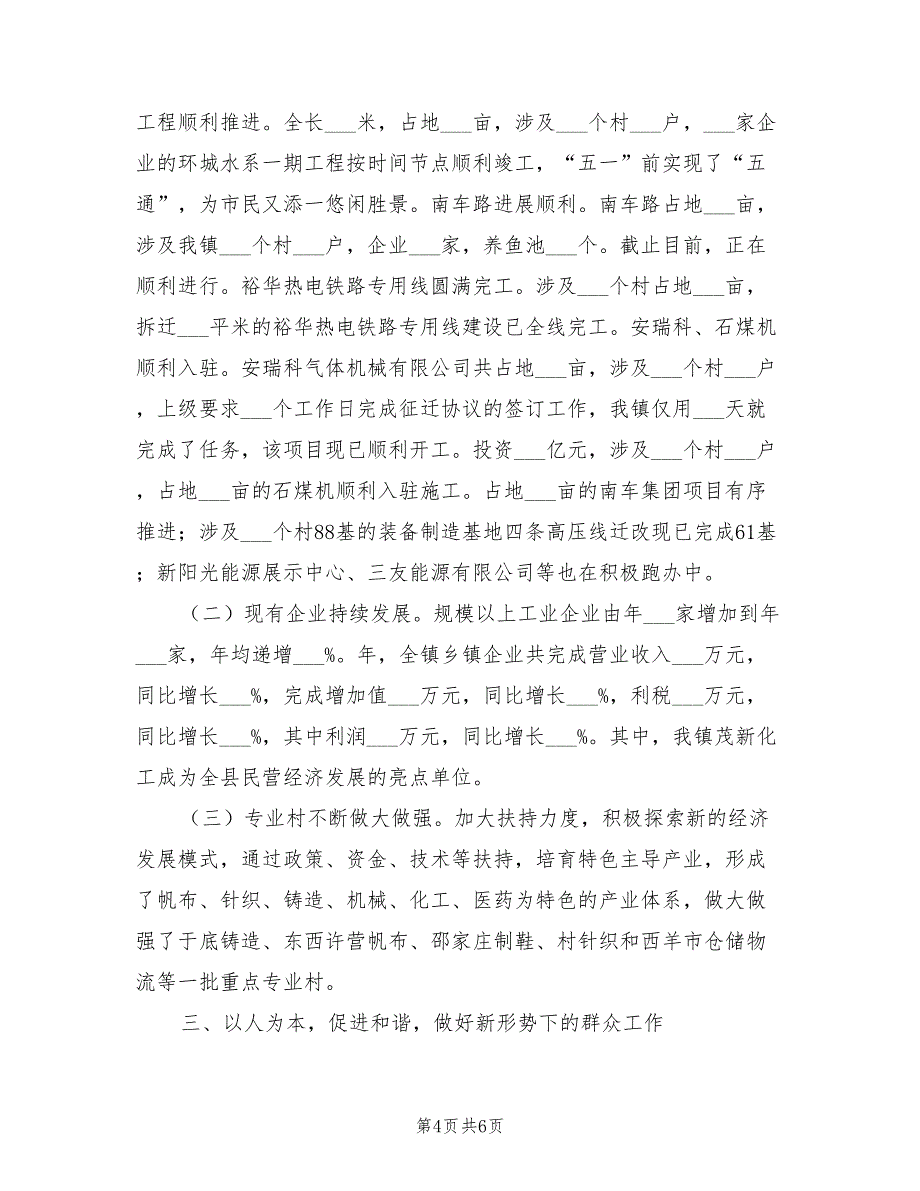 工程顺利推进。全长___米，占地___亩，涉及___个村___户，___家企
业的环城水系一期工程按时间节点顺利竣工，“五一”前实现了“五
通”，为市民又添一悠闲胜景。南车路进展顺利。南车路占地___亩，
涉及我镇___个村___户，企业___家，养鱼池___个。截止目前，正在
顺利进行。裕华热电铁路专用线圆满完工。涉及___个村占地___亩，
拆迁___平米的裕华热电铁路专用线建设已全线完工。安瑞科、石煤机
顺利入驻。安瑞科气体机械有限公司共占地___亩，涉及___个村___户
，上级要求___个工作日完成征迁协议的签订工作，我镇仅用___天就
完成了任务，该项目现已顺利开工。投资___亿元，涉及___个村___户
，占地___亩的石煤机顺利入驻施工。占地___亩的南车集团项目有序
推进；涉及___个村88基的装备制造基地四条高压线迁改现已完成61基
；新阳光能源展示中心、三友能源有限公司等也在积极跑办中。
（二）现有企业持续发展。规模以上工业企业由年___家增加到年
___家，年均递增___%。年，全镇乡镇企业共完成营业收入___万元，
同比增长___%，完成增加值___万元，同比增长___%，利税___万元，
同比增长___%，其中利润___万元，同比增长___%。其中，我镇茂新化
工成为全县民营经济发展的亮点单位。
（三）专业村不断做大做强。加大扶持力度，积极探索新的经济
发展模式，通过政策、资金、技术等扶持，培育特色主导产业，形成
了帆布、针织、铸造、机械、化工、医药为特色的产业体系，做大做
强了于底铸造、东西许营帆布、邵家庄制鞋、村针织和西羊市仓储物
流等一批重点专业村。
三、以人为本，促进和谐，做好新形势下的群众工作
第4页共6页